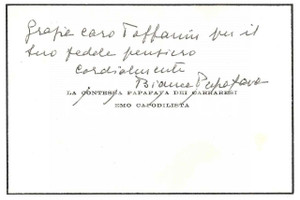 Grazie caro Toffanin per il
suo fedele pensiero
cordialmente
Bianca Papafava
LA CONTESSA PAPAFAVA DEI CARRARESI
EMO CAPODILISTA